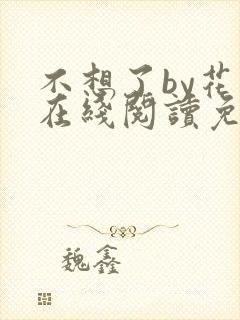 不想了by花
在綫閱讀免
魏鑫